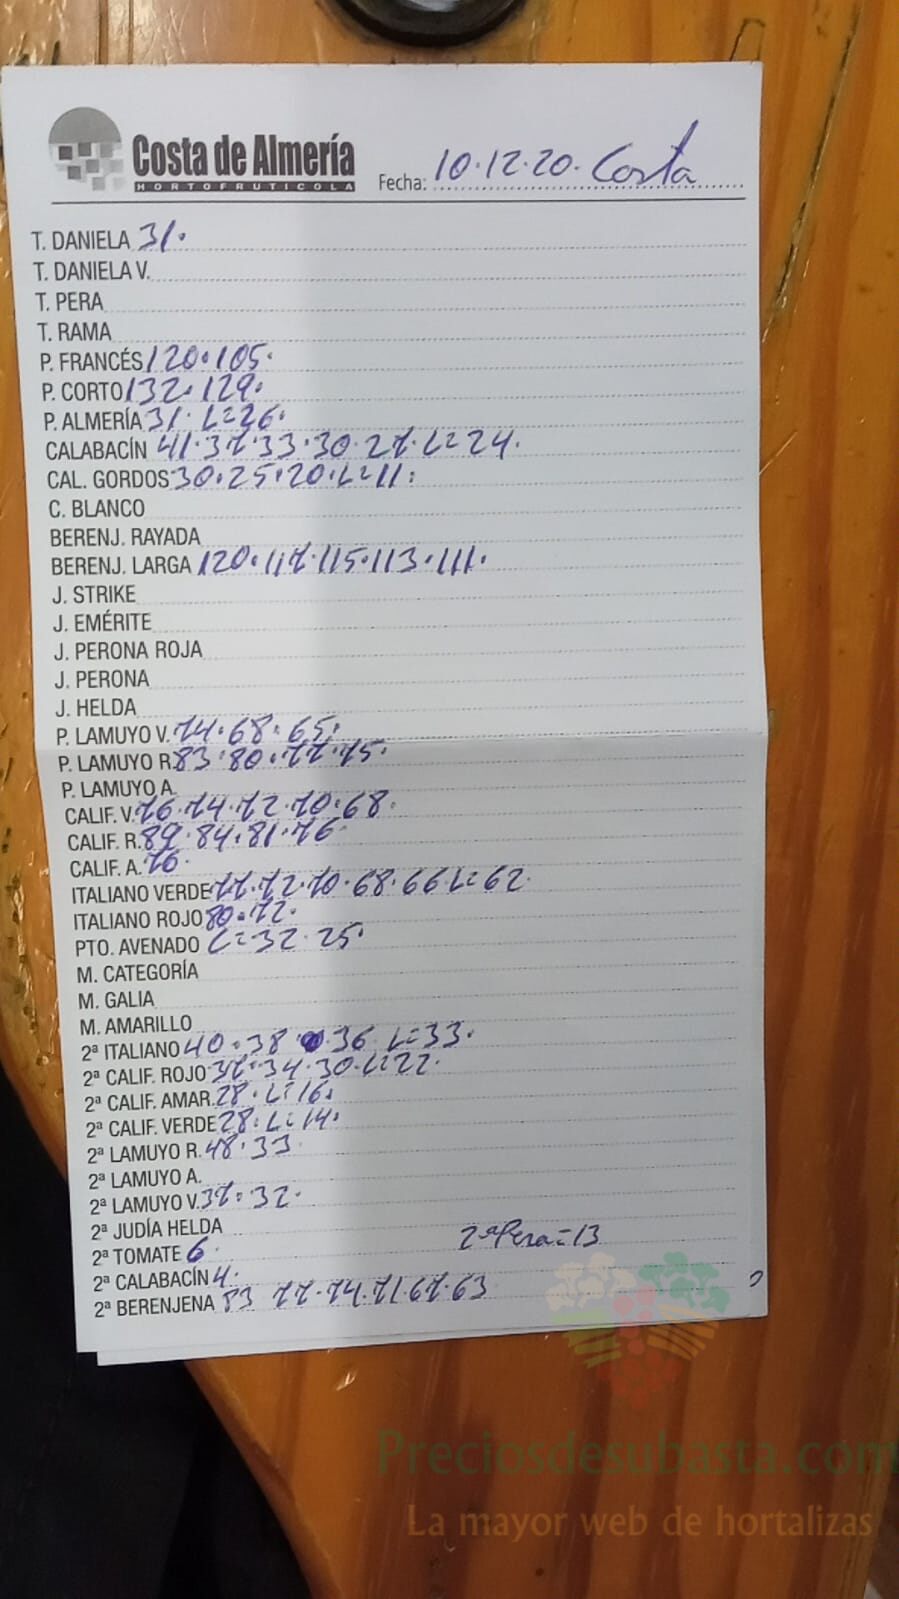 Costa de Almería
HORTOFRUTICOLA
Fecha: 10.12.20. Costa
T. DANIELA 31.
T. DANIELA V.
T. PERA
T. RAMA
P. FRANCÉS 120.105.
P. CORTO 132.129.
P. ALMERÍA 31. L=26.
CALABACÍN 41.37.33.30.27.L=24.
CAL. GORDOS 30.25.20.L=11.
C. BLANCO
BERENJ. RAYADA
BERENJ. LARGA 120.117.115.113.111.
J. STRIKE
J. EMÉRITE
J. PERONA ROJA
J. PERONA
J. HELDA
P. LAMUYO V. 74.68.65.
P. LAMUYO R. 83.80.77.75.
P. LAMUYO A.
CALIF. V. 76.74.72.70.68.
CALIF. R. 89.84.81.76.
CALIF. A. 76.
ITALIANO VERDE 77.72.70.68.66 L=62.
ITALIANO ROJO 80.72.
PTO. AVENADO L=32.25.
M. CATEGORÍA
M. GALIA
M. AMARILLO
2ª ITALIANO 40.38.36.L=33.
2ª CALIF. ROJO 37.34.30.L=22.
2ª CALIF. AMAR. 28.L=16.
2ª CALIF. VERDE 28.L=14.
2ª LAMUYO R. 48.33.
2ª LAMUYO A.
2ª LAMUYO V. 37.32.
2ª JUDÍA HELDA
2ª TOMATE 6. 2ª Pera=13
2ª CALABACÍN 4.
2ª BERENJENA 83 77.74.71.67.63
Preciosdesubasta.com
La mayor web de hortalizas